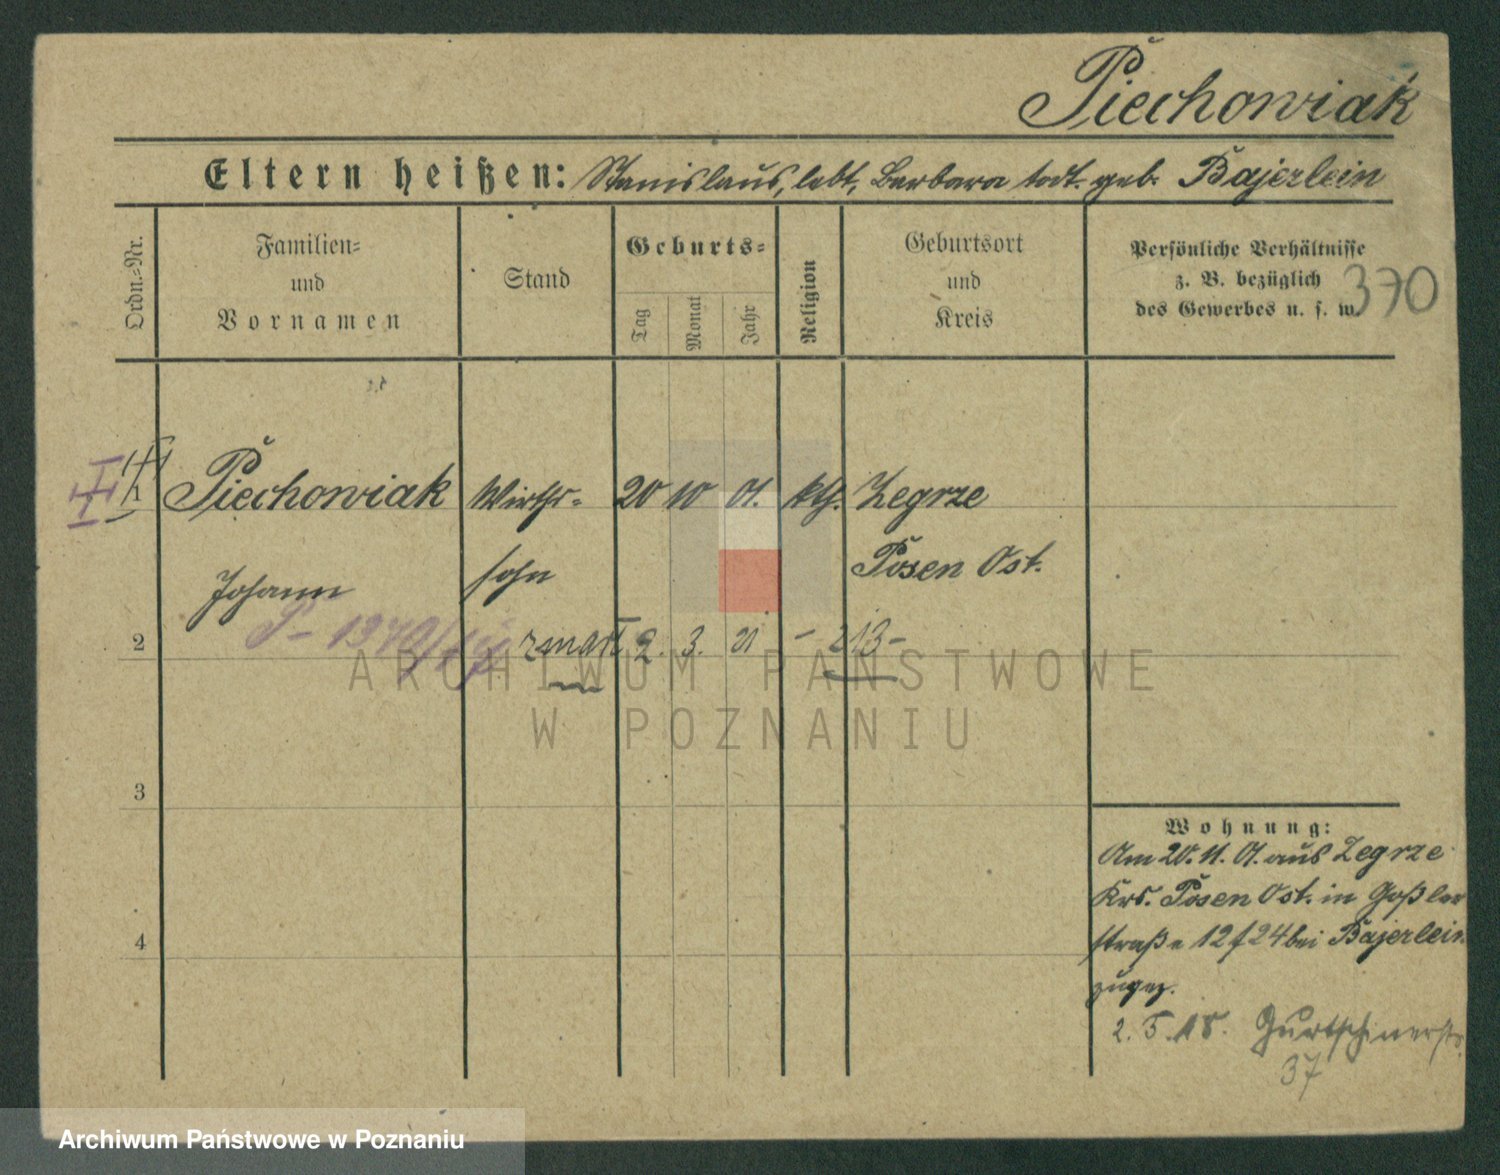 Piechowiak
Eltern heißen: Stanislaus, lebt, Barbara todt. geb. Bajerlein
Ordn.-Nr.
Familien-
und
Vornamen
Stand
Geburts-
Tag
Monat
Jahr
Religion
Geburtsort
und
Kreis
Persönliche Verhältnisse
z. B. bezüglich
des Gewerbes u. s. w.
370
1 Piechowiak Wirths- 20 10 01. kth. Zegrze
Johann sohn Posen Ost.
2 zmarł 2. 3. 21 - 213 -
3
4
Wohnung:
Am 20. 11. 01. aus Zegrze
Krs. Posen Ost. in Goßler
straße 12 f 24 bei Bajerlein
zugez.
2. 5. 15. Gurtschinerstr.
37
ARCHIWUM PAŃSTWOWE
W POZNANIU
Archiwum Państwowe w Poznaniu